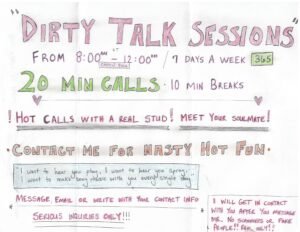 "DIRTY TALK SESSIONS"
FROM 8:00AM - 12:00AM / 7 DAYS A WEEK 365
20 MIN CALLS · 10 MIN BREAKS
! HOT CALLS WITH A REAL STUD! MEET YOUR SOULMATE!
· CONTACT ME FOR NASTY HOT FUN ·
I want to hear you play, I want to hear you
I want to make you with you every single day
MESSAGE, EMAIL OR WRITE WITH YOUR CONTACT INFO
SERIOUS INQUIRIES ONLY!!!
I WILL GET IN CONTACT
WITH YOU AFTER YOU MESSAGE
ME. NO SCAMMERS OR FAKE
PEOPLE!! REAL ONLY!!